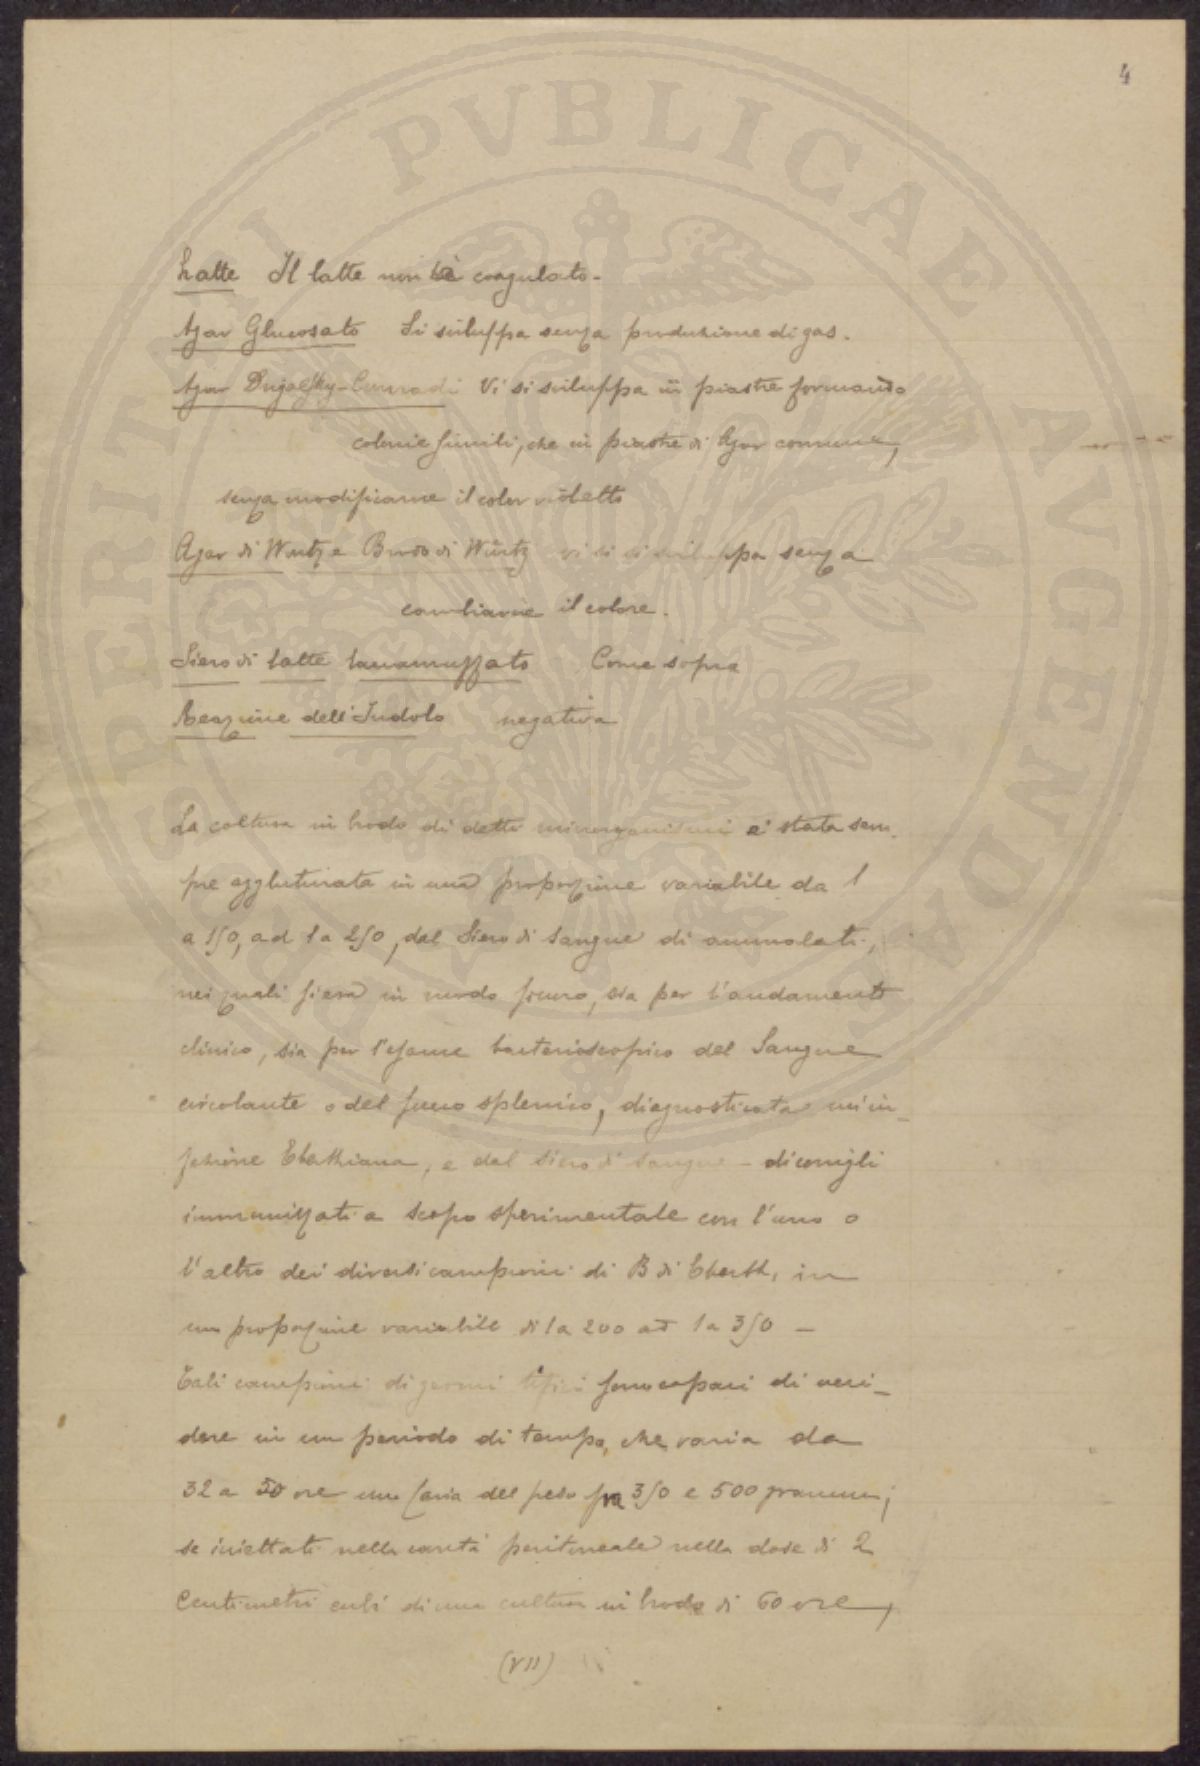 4
PROSPERITATI PVBLICAE AVGENDAE
Latte Il latte non è coagulato.
Agar Glucosato Si sviluppa senza produzione di gas.
Agar Drigalsky-Conradi Vi si sviluppa in piastre formando
colonie simili, che in piastre di Agar comune,
senza modificarne il color violetto
Agar di Wurtz e Brodo di Würtz vi si si sviluppa senza
cambiarne il colore.
Siero di latte tornasolato Come sopra
Reazione dell'Indolo negativa
La coltura in brodo di detti microrganismi è stata sem-
pre agglutinata in una proporzione variabile da 1
a 150, ad 1 a 250, dal Siero di Sangue di ammalati,
nei quali si era in modo sicuro, sia per l'andamento
clinico, sia per l'esame batterioscopico del Sangue
circolante o del succo splenico, diagnosticata un'in-
fezione Eberthiana, e dal siero di sangue - di conigli
immunizzati a scopo sperimentale con l'uno o
l'altro dei diversi campioni di B di Eberth, in
una proporzione variabile di 1 a 200 ad 1 a 350 -
Tali campioni di germi tifici sono capaci di ucci-
dere in un periodo di tempo, che varia da
32 a 50 ore una Cavia del peso fra 350 e 500 grammi;
se iniettati nella cavità peritoneale nella dose di 2
Centimetri cubi di una cultura in brodo di 60 ore,
(VII)